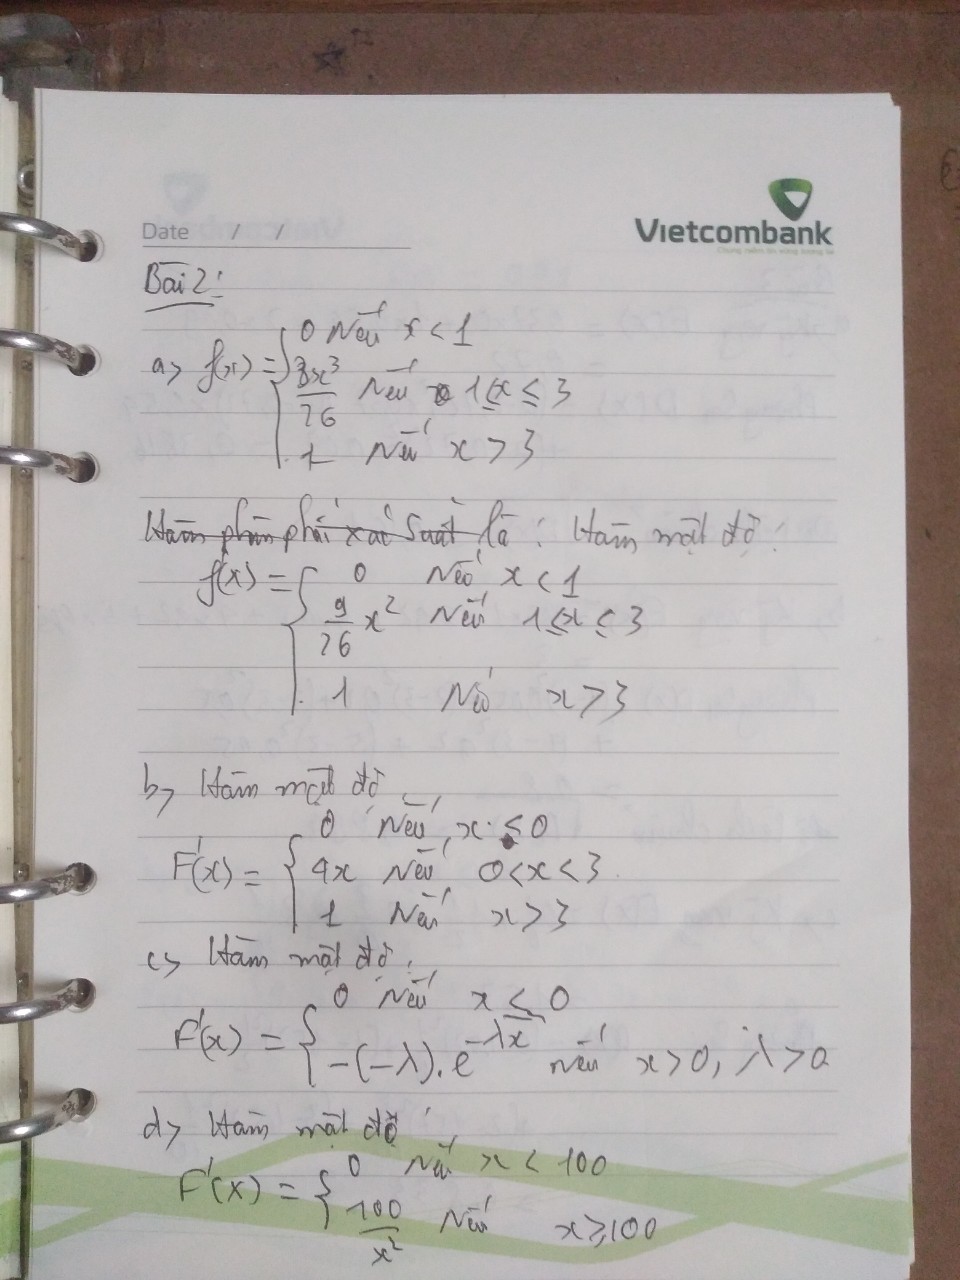 Vietcombank
Date / /
Bài 2:
a> f(x) = { 0 Nếu x < 1
3x³/26 Nếu 1 ≤ x ≤ 3
1 Nếu x > 3
Hàm phân phối xác suất là : Hàm mật độ :
f'(x) = { 0 Nếu x < 1
9/26 x² Nếu 1 ≤ x ≤ 3
1 Nếu x > 3
b> Hàm mật độ
F'(x) = { 0 Nếu x ≤ 0
4x Nếu 0 < x < 3
1 Nếu x > 3
c> Hàm mật độ
F'(x) = { 0 Nếu x ≤ 0
-(-λ). e^-λx nếu x > 0, λ > 0
d> Hàm mật độ
F'(x) = { 0 Nếu x < 100
100/x² Nếu x ≥ 100